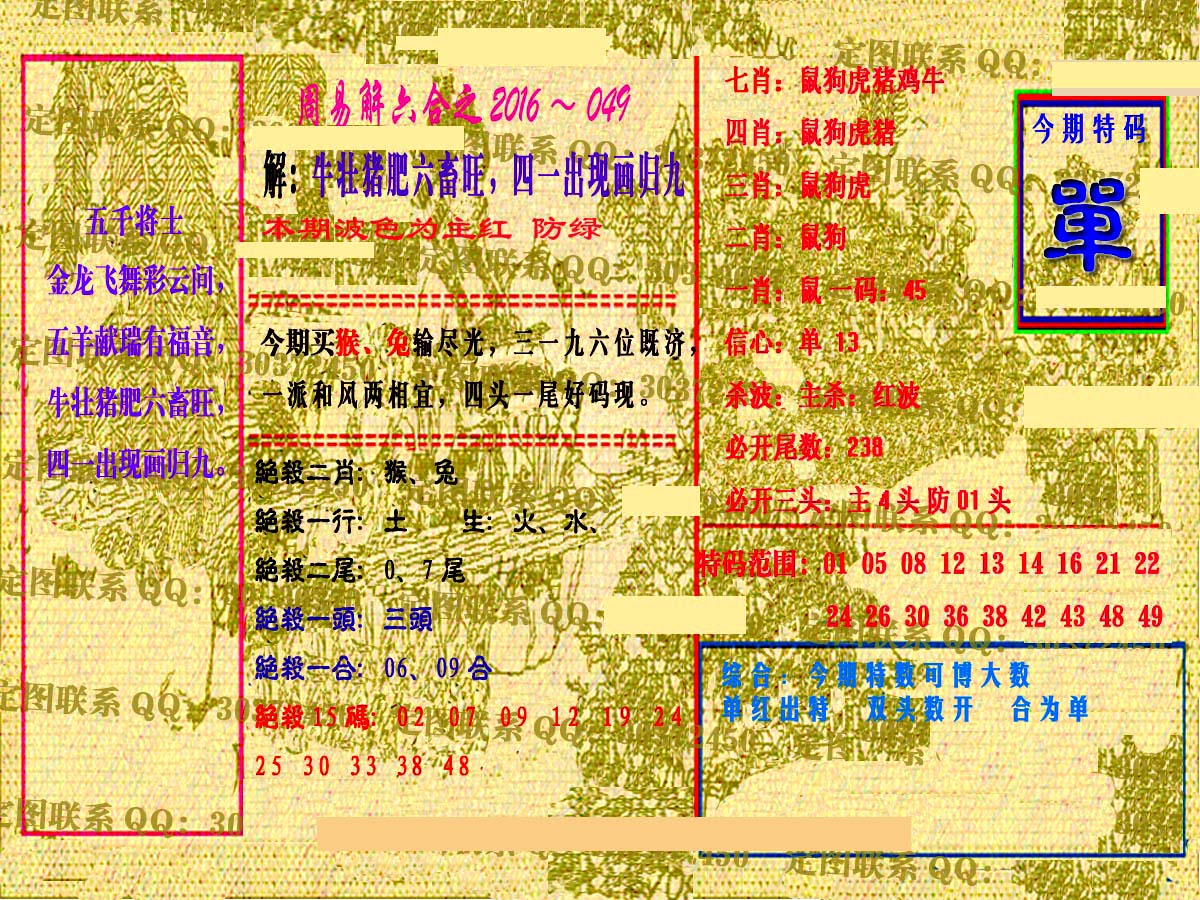 五千将士
金龙飞舞彩云间，
五羊献瑞有福音，
牛壮猪肥六畜旺，
四一出现画归九。
周易解六合之 2016～049
解：牛壮猪肥六畜旺，四一出现画归九
本期波色为主红 防绿
今期买猴、兔输尽光，三一九六位既济，
一派和风两相宜，四头一尾好码现。
絕殺二肖：猴、兔
絕殺一行：土 生：火、水、
絕殺二尾：0、7尾
絕殺一頭：三頭
絕殺一合：06、09合
絕殺15碼：02 07 09 12 19 24
25 30 33 38 48
七肖：鼠狗虎猪鸡牛
四肖：鼠狗虎猪
三肖：鼠狗虎
二肖：鼠狗
一肖：鼠 一码：45
信心：单 13
杀波：主杀：红波
必开尾数：238
必开三头：主4头防01头
今期特码
單
特码范围：01 05 08 12 13 14 16 21 22
24 26 30 36 38 42 43 48 49
综合：今期特数可博大数
单红出特 双头数开 合为单
定图联系 QQ：